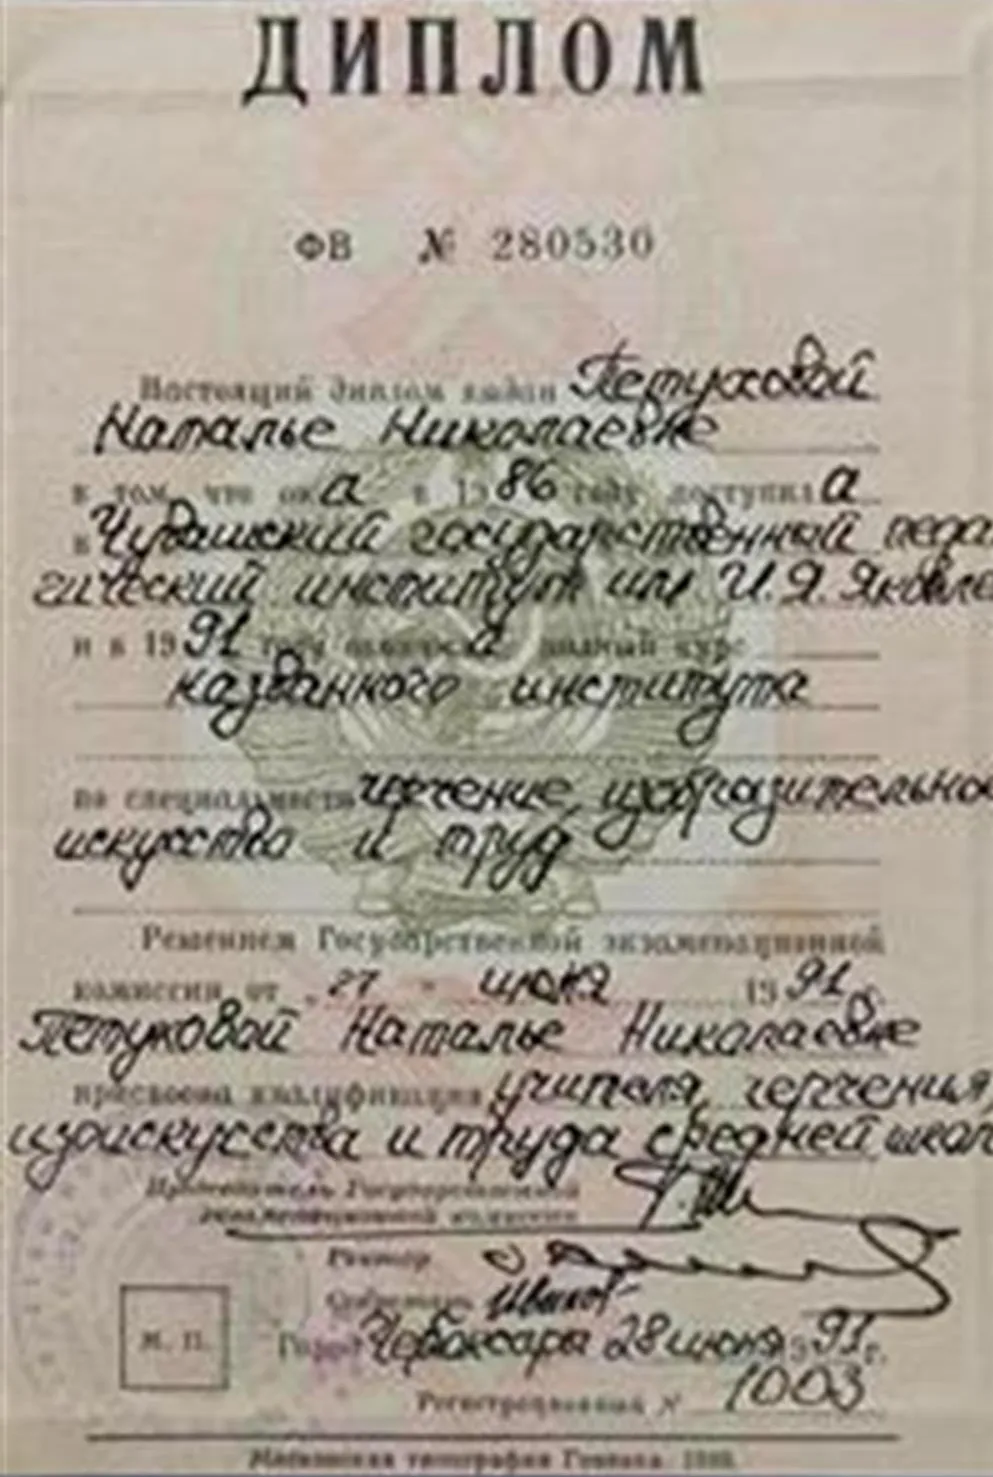 ДИПЛОМ
ФВ № 280530
Настоящий диплом выдан Петуховой
Наталье Николаевне
в том, что она в 1986 году поступила
в Чувашский государственный педа
гический институт им И.Я. Яковле
и в 1991 году окончила полный курс
названного института
по специальности черчение, изобразительное
искусство и труд
Решением Государственной экзаменационной
комиссии от „27" июня 1991 г.
Петуховой Наталье Николаевне
присвоена квалификация учителя черчения,
изоискусства и труда средней школ
Председатель Государственной
экзаменационной комиссии
Ректор
Секретарь
М. П.
Город Чебоксары 28 июня 1991 г.
Регистрационный № 1003
Московская типография Гознака.